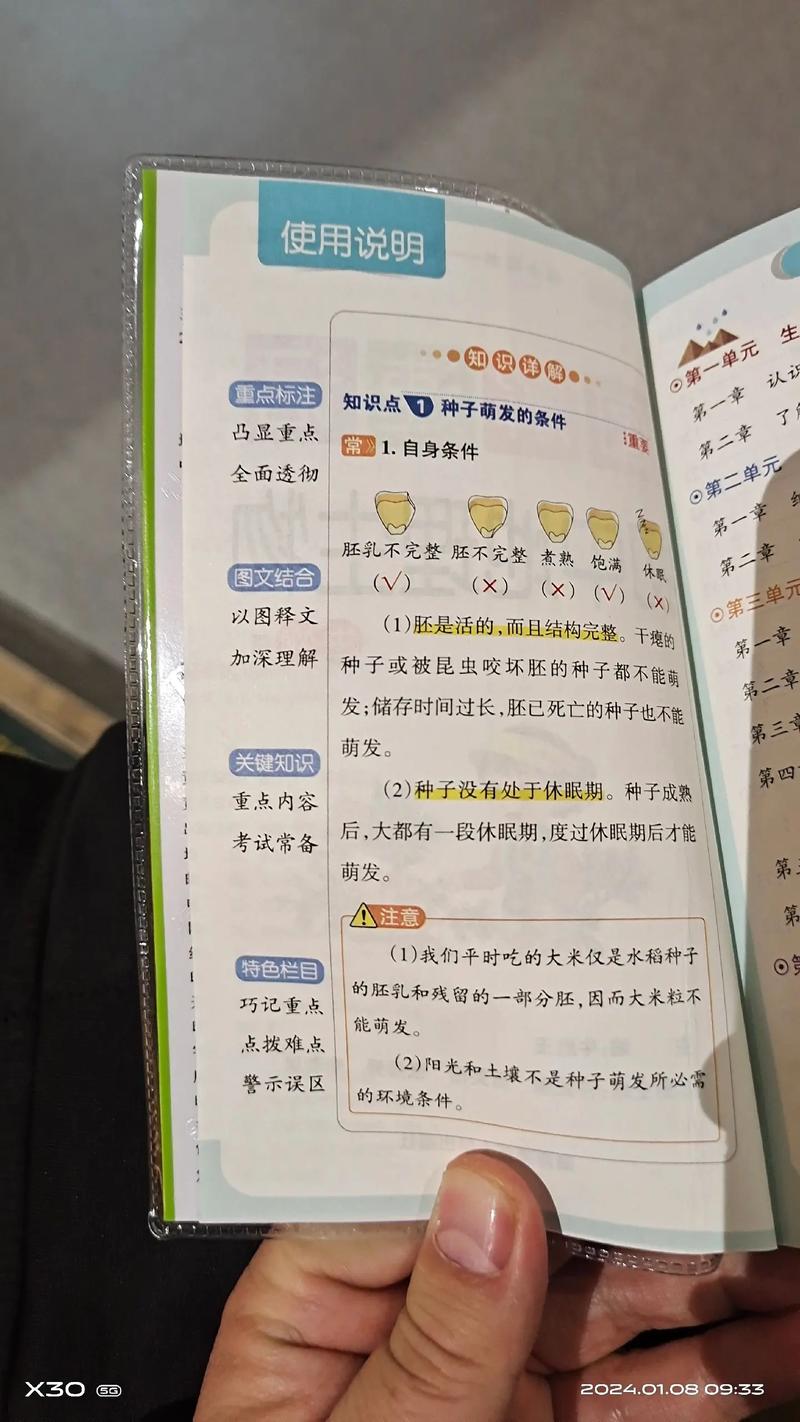 使用说明
重点标注
凸显重点
全面透彻
图文结合
以图释文
加深理解
关键知识
重点内容
考试常备
特色栏目
巧记重点
点拨难点
警示误区
知识详解
知识点 1 种子萌发的条件
重要
常 1. 自身条件
胚乳不完整 胚不完整 煮熟 饱满 休眠
(√) (×) (×) (√) (×)
(1)胚是活的,而且结构完整。干瘪的
种子或被昆虫咬坏胚的种子都不能萌
发;储存时间过长,胚已死亡的种子也不能
萌发。
(2)种子没有处于休眠期。种子成熟
后,大都有一段休眠期,度过休眠期后才能
萌发。
注意
(1)我们平时吃的大米仅是水稻种子
的胚乳和残留的一部分胚,因而大米粒不
能萌发。
(2)阳光和土壤不是种子萌发所必需
的环境条件。
第一单元 生
第一章 认识
第二章 了解
第二单元
第一章
第二章
第三单元
第一章
第二章
第三章
第四
第
第
X30 5G
2024.01.08 09:33